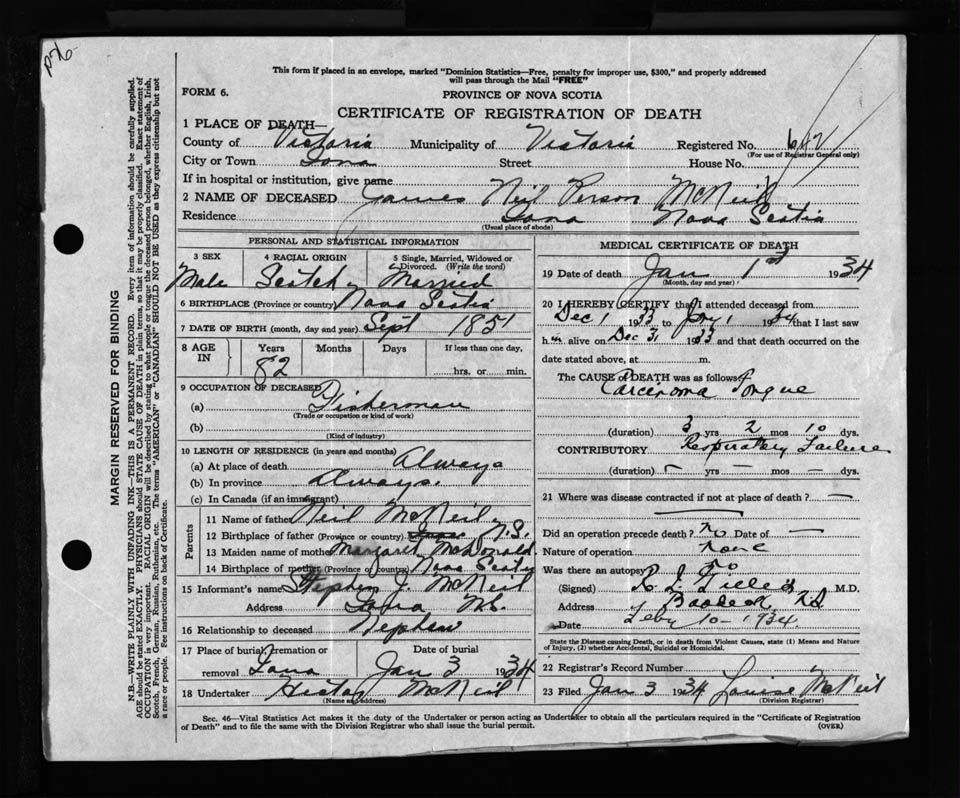 This form if placed in an envelope, marked "Dominion Statistics—Free, penalty for improper use, $300," and properly addressed
will pass through the Mail "FREE"
FORM 6.
PROVINCE OF NOVA SCOTIA
CERTIFICATE OF REGISTRATION OF DEATH
1 PLACE OF DEATH—
County of Victoria Municipality of Victoria Registered No. 642
(For use of Registrar General only)
City or Town Iona Street House No.
If in hospital or institution, give name
2 NAME OF DECEASED James Neil Person McNeil
Residence Iona Nova Scotia
(Usual place of abode)
PERSONAL AND STATISTICAL INFORMATION
3 SEX 4 RACIAL ORIGIN 5 Single, Married, Widowed or
Divorced. (Write the word)
Male Scotch Married
6 BIRTHPLACE (Province or country) Nova Scotia
7 DATE OF BIRTH (month, day and year) Sept 1851
8 AGE IN Years Months Days If less than one day,
82 hrs. or min.
9 OCCUPATION OF DECEASED
(a) Fisherman
(Trade or occupation or kind of work)
(b)
(Kind of industry)
10 LENGTH OF RESIDENCE (in years and months)
(a) At place of death Always
(b) In province Always.
(c) In Canada (if an immigrant)
Parents
11 Name of father Neil McNeil
12 Birthplace of father (Province or country) N.S.
13 Maiden name of mother Margaret McDonald
14 Birthplace of mother (Province or country) Nova Scotia
15 Informant's name Stephen J. McNeil
Address Iona
16 Relationship to deceased Nephew
17 Place of burial, cremation or Date of burial
removal Iona Jan 3 1934
18 Undertaker Hector McNeil
(Name and address)
MEDICAL CERTIFICATE OF DEATH
19 Date of death Jan 1st 1934
(Month, day and year)
20 I HEREBY CERTIFY that I attended deceased from
Dec 1 1933 to Jany 1 1934 that I last saw
him alive on Dec 31 1933 and that death occurred on the
date stated above, at m.
The CAUSE of DEATH was as follows:
Carcenoma Tongue
(duration) 3 yrs 2 mos 10 dys.
CONTRIBUTORY Respiratory Failure
(duration) — yrs — mos — dys.
21 Where was disease contracted if not at place of death? —
Did an operation precede death? no Date of —
Nature of operation none
Was there an autopsy? no
(Signed) M.D.
Address Baddeck NS
Date Feby 10 - 1934
State the Disease causing Death, or in death from Violent Causes, state (1) Means and Nature
of Injury, (2) whether Accidental, Suicidal or Homicidal.
22 Registrar's Record Number
23 Filed Jan 3 1934 Louise McNeil
(Division Registrar)
Sec. 46—Vital Statistics Act makes it the duty of the Undertaker or person acting as Undertaker to obtain all the particulars required in the "Certificate of Registration
of Death" and to file the same with the Division Registrar who shall issue the burial permit. (OVER)
MARGIN RESERVED FOR BINDING
N.B.—WRITE PLAINLY WITH UNFADING INK—THIS IS A PERMANENT RECORD. Every item of information should be carefully supplied.
AGE should be stated EXACTLY. PHYSICIANS should STATE CAUSE OF DEATH in plain terms, so that it may be properly classified. Exact statement of
OCCUPATION is very important. RACIAL ORIGIN will be described by stating to what people or tongue the deceased person belonged, whether English, Irish,
Scotch, French, German, Russian, Ruthenian, etc. The terms "AMERICAN" or "CANADIAN" SHOULD NOT BE USED as they express citizenship but not
a race or people. See instructions on back of Certificate.